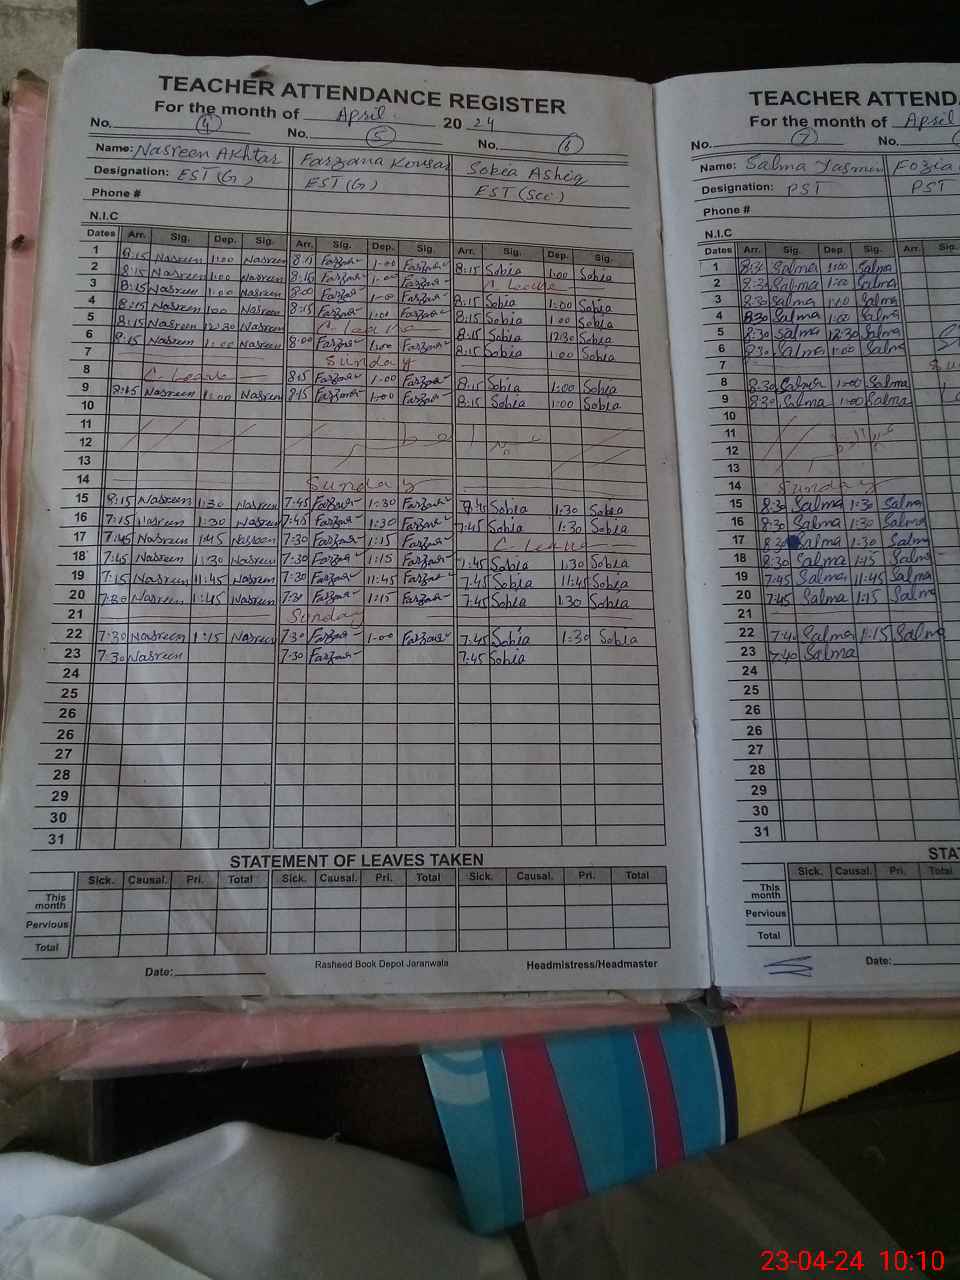 TEACHER ATTENDANCE REGISTER
For the month of April 2024
No. 4 No. 5 No. 6
Name: Nasreen Akhtar Farzana Kousar Sobia Ashiq
Designation: EST (G) EST (G) EST (Sci)
Phone #
N.I.C
Dates Arr. Sig. Dep. Sig. Arr. Sig. Dep. Sig. Arr. Sig. Dep. Sig.
1 8:15 Nasreen 1:00 Nasreen 8:15 Farzana 1:00 Farzana 8:15 Sobia 1:00 Sobia
2 8:15 Nasreen 1:00 Nasreen 8:16 Farzana 1:00 Farzana C. Leave
3 8:15 Nasreen 1:00 Nasreen 8:00 Farzana 1:00 Farzana 8:15 Sobia 1:00 Sobia
4 8:15 Nasreen 1:00 Nasreen 8:15 Farzana 1:00 Farzana 8:15 Sobia 1:00 Sobia
5 8:15 Nasreen 12:30 Nasreen C. Leave 8:15 Sobia 12:30 Sobia
6 8:15 Nasreen 1:00 Nasreen 8:00 Farzana 1:00 Farzana 8:15 Sobia 1:00 Sobia
7 Sunday
8 C. Leave 8:15 Farzana 1:00 Farzana 8:15 Sobia 1:00 Sobia
9 8:45 Nasreen 1:00 Nasreen 8:15 Farzana 1:00 Farzana 8:15 Sobia 1:00 Sobia
10
11
12
13
14 Sunday
15 8:15 Nasreen 1:30 Nasreen 7:45 Farzana 1:30 Farzana 7:45 Sobia 1:30 Sobia
16 7:15 Nasreen 1:30 Nasreen 7:45 Farzana 1:30 Farzana 7:45 Sobia 1:30 Sobia
17 7:45 Nasreen 1:45 Nasreen 7:30 Farzana 1:15 Farzana C. Leave
18 7:45 Nasreen 1:30 Nasreen 7:30 Farzana 1:15 Farzana 7:45 Sobia 1:30 Sobia
19 7:15 Nasreen 11:45 Nasreen 7:30 Farzana 11:45 Farzana 7:45 Sobia 11:45 Sobia
20 7:30 Nasreen 1:45 Nasreen 7:30 Farzana 1:15 Farzana 7:45 Sobia 1:30 Sobia
21 Sunday
22 7:30 Nasreen 1:15 Nasreen 7:30 Farzana 1:00 Farzana 7:45 Sobia 1:30 Sobia
23 7:30 Nasreen 7:30 Farzana 7:45 Sobia
24
25
26
26
27
28
29
30
31
STATEMENT OF LEAVES TAKEN
Sick. Causal. Pri. Total Sick. Causal. Pri. Total Sick. Causal. Pri. Total
This month
Pervious
Total
Date: Rasheed Book Depot Jaranwala Headmistress/Headmaster
TEACHER ATTENDA
For the month of April
No. 7
Name: Salma Yasmin Fozia
Designation: PST PST
Phone #
N.I.C
Dates Arr. Sig. Dep. Sig. Arr. Sig.
1 8:30 Salma 1:00 Salma
2 8:30 Salma 1:00 Salma
3 8:30 Salma 1:00 Salma
4 8:30 Salma 1:00 Salma
5 8:30 Salma 12:30 Salma
6 8:30 Salma 1:00 Salma
7
8 8:30 Salma 1:00 Salma
9 8:30 Salma 1:00 Salma
10
11
12
13
14 Sunday
15 8:30 Salma 1:30 Salma
16 8:30 Salma 1:30 Salma
17 8:30 Salma 1:30 Salma
18 8:30 Salma 1:15 Salma
19 7:45 Salma 11:45 Salma
20 7:45 Salma 1:15 Salma
21
22 7:40 Salma 1:15 Salma
23 7:40 Salma
24
25
26
26
27
28
29
30
31
STAT
Sick. Causal. Pri. Total
This month
Pervious
Total
Date:
23-04-24 10:10